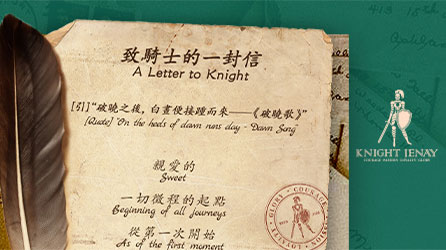 致騎士的一封信
A Letter to Knight
[引]“破曉之後，白晝便接踵而來——《破曉歌》”
[Quote] "On the heels of dawn runs day - Dawn Song"
親愛的
Sweet
一切徵程的起點
Beginning of all journeys
從第一次開始
As of the first moment
KNIGHT JENAY
COURAGE PASSION LOYALTY GLORY
GLORY COURAGE LOYALTY